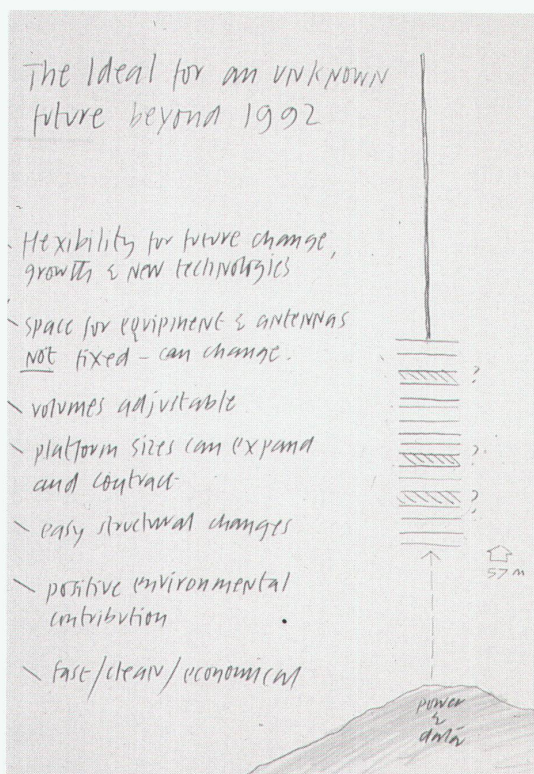 The Ideal for an UNKNOWN
future beyond 1992
\ flexibility for future change,
growth & new technologies
\ space for equipment & antennas
NOT fixed – can change.
\ volumes adjustable
\ platform sizes can expand
and contract
\ easy structural changes
\ positive environmental
contribution
\ fast/clean/economical
?
?
?
57 m
power
&
data